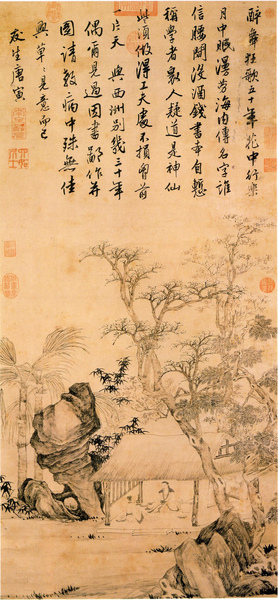 醉舞狂歌五十年花中行樂
月中眠漫勞海內傳名字誰
信腰間沒酒錢書本自慙
稱學者眾人疑道是神仙
些須做得工夫處不損胸前
一片天 與西洲別幾三十年
偶爾見過因書鄙作并
圖請教病中殊無佳
興草々見意而已
友生唐寅